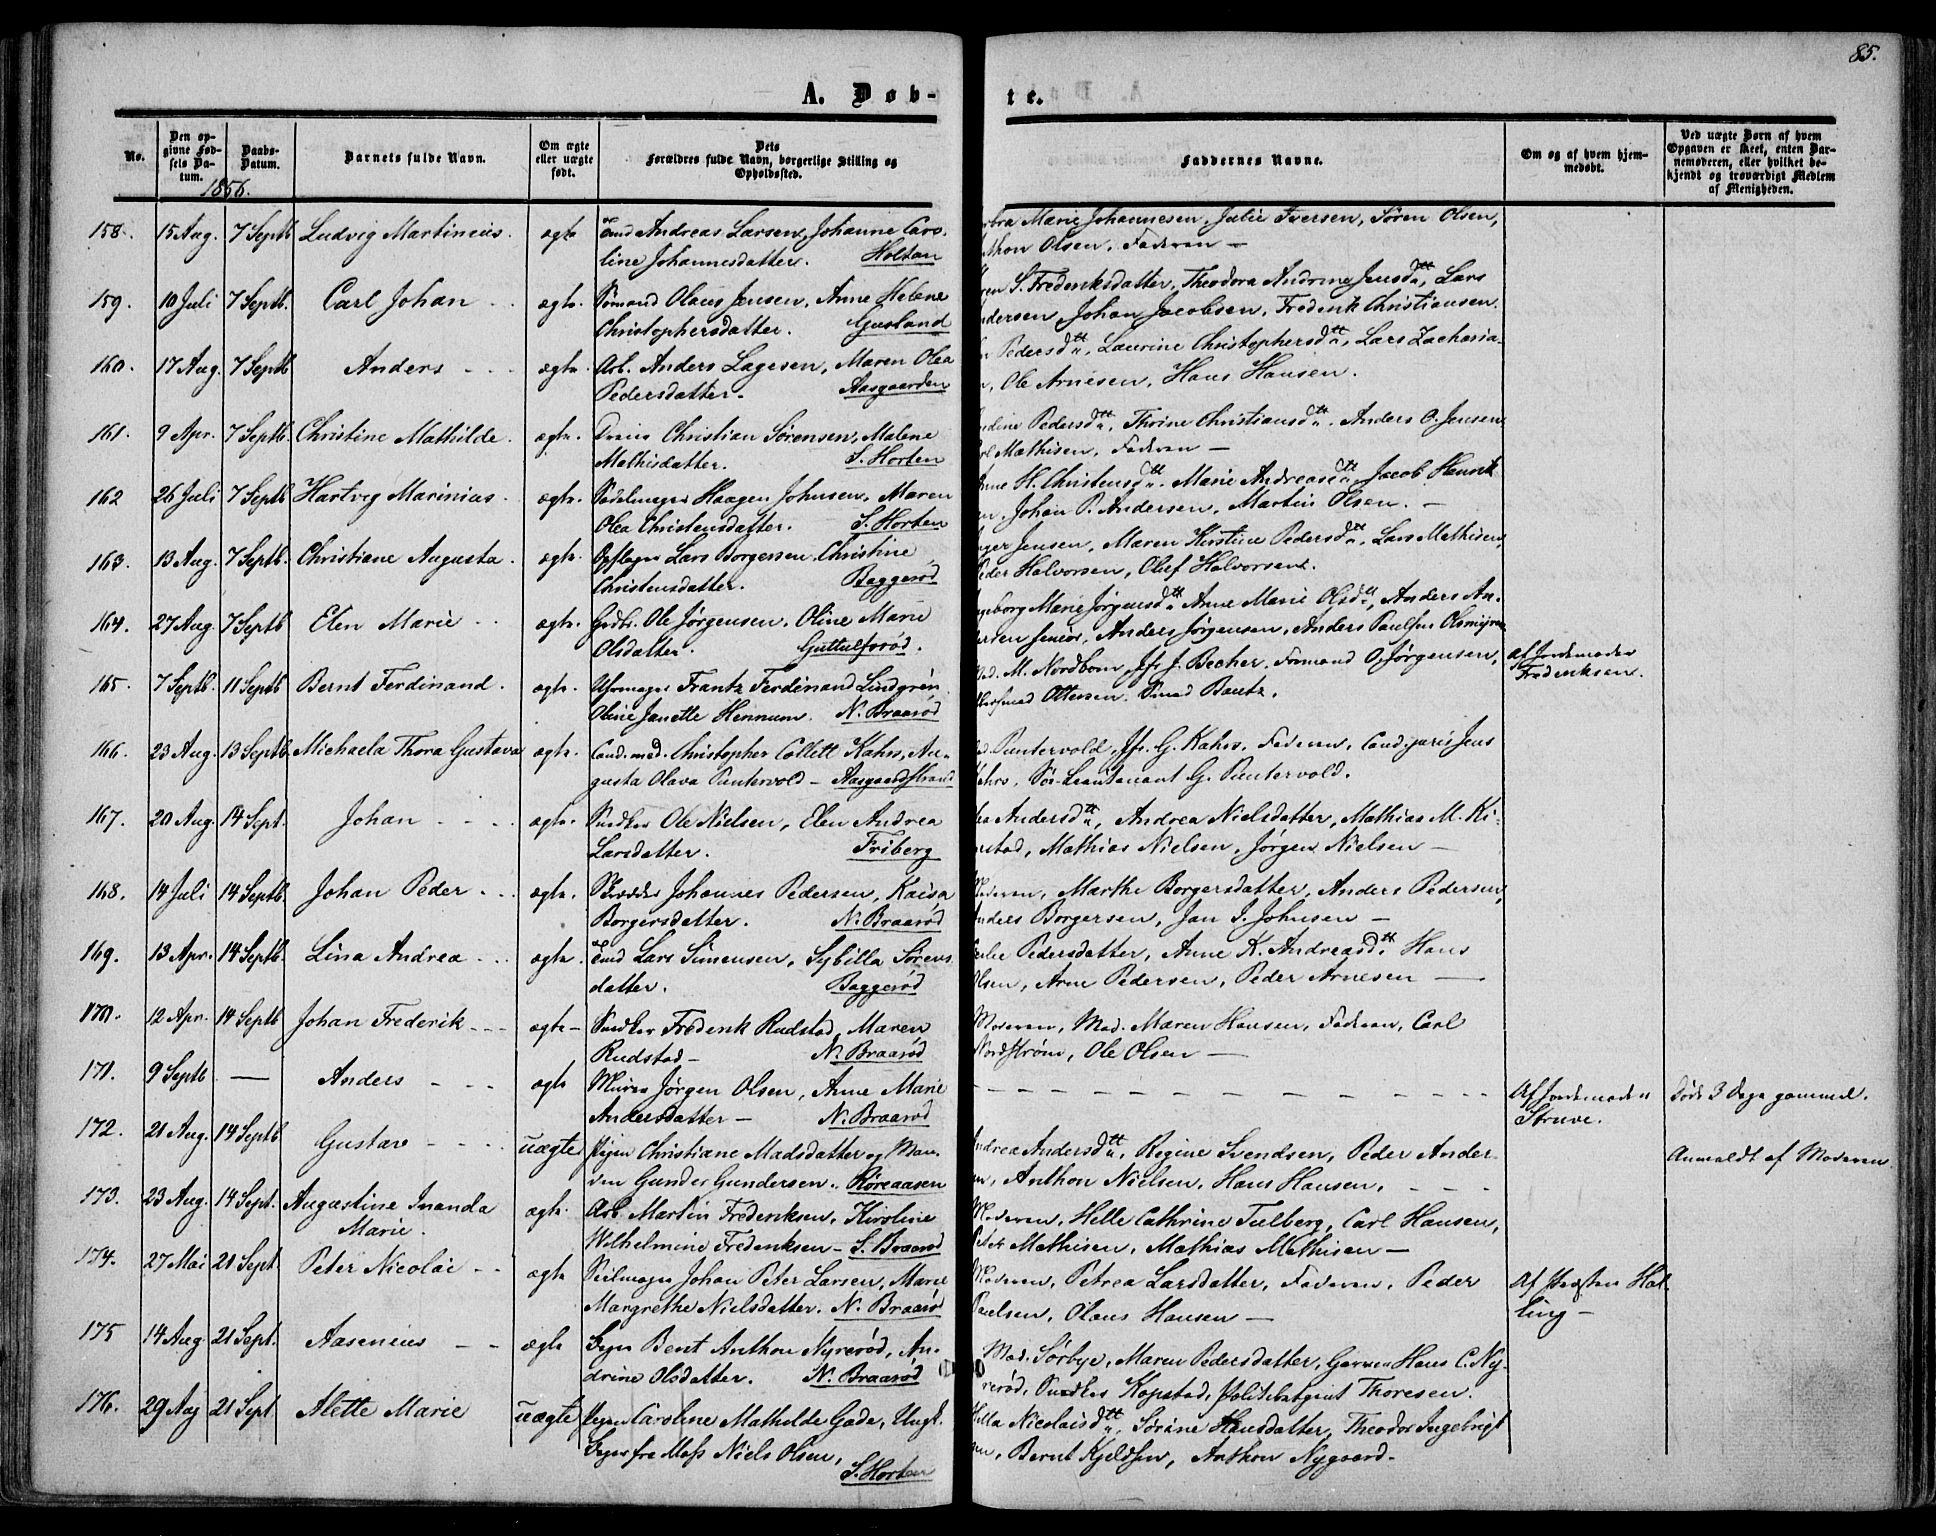 85.
A. Døb-
te.
No.
Den op-
givne Fød-
sels Da-
tum.
Daabs-
Datum.
Barnets fulde Navn.
Om ægte
eller uægte
født.
Dets
Forældres fulde Navn, borgerlige Stilling og
Opholdssted.
Faddernes Navne.
Om og af hvem hjem-
medøbt.
Ved uægte Børn af hvem
Opgaven er skeet, enten Bar-
nemoderen, eller hvilket be-
kjendt og troværdigt Medlem
af Menigheden.
1856.
158. 15 Aug. 7 Septb Ludvig Martinius. ægte Andreas Larsen, Johanne Caro-
line Johannesdatter. Holtan
Marie Johannesen, Julie Iversen, Søren Olsen,
Olsen, Faderen —
159. 10 Juli 7 Septb. Carl Johan ægte. Sømand Olaus Jensen, Anne Helene
Christophersdatter. Gusland
S. Frederiksdatter, Theodora Andrine Jensdtt, Lars
Johan Jacobsen, Frederik Christiansen.
160. 17 Aug. 7 Septb Anders ægte. Arb. Anders Lagesen, Maren Olea
Pedersdatter. Aasgaarden
Pedersdtt, Laurine Christophersdtt, Lars Zacharia-
Ole Arnesen, Hans Hansen.
161. 9 Apr. 7 Septb. Christine Mathilde. ægte. Christian Sørensen, Malene
Mathisdatter. S. Horten
Pedersdtt, Thrine Christiansdtt. Anders O. Jensen,
Mathisen, Faderen —
162 26 Juli 7 Septb Hartvig Marinius. ægte. Sadelmager Haagen Johnsen, Maren
Olea Christensdatter. S. Horten
H. Christensdtt. Marie Andreasdtt, Jacob Henrik-
Johan P. Andersen, Martin Olsen. —
163. 13 Aug. 7 Septb. Christiane Augusta. ægte. Lars Borgersen, Christine
Christensdatter. Baggerød
Jensen, Maren Kirstine Pedersdtt, Lars Mathisen,
Halvorsen, Oluf Halvorsen.
164. 27 Aug. 7 Septb Elen Marie ægte. Gdbr. Ole Jørgensen, Oline Marie
Olsdatter. Guttulfsrød.
Marie Jørgensdtt Anne Marie Olsdtt, Anders An-
Senior, Anders Jørgensen, Anders Paulsen
165. 7 Septb. 11 Septb Bernt Ferdinand. ægte. Uhrmager Frantz Ferdinand Lindgrén
Oline Janette Hennum. N. Braarød
M. Nordbom, Jfr. J. Becher, Formand O. Jørgensen,
Ottersen. Smed Bautz.
Af Jordemoder
Frederiksen.
166. 23 Aug. 13 Septb. Michaela Thora Gustava ægte. Cand. med. Christopher Collett Kahrs, Au-
gusta Olava Puntervold — Aasgaardstrand
Puntervold, Jfr. G. Kahrs, Faderen, Cand. juris Jens
Kahrs, Sø-Lieutenant G. Puntervold.
167. 20 Aug. 14 Sept. Johan ægte. Snedker Ole Nielsen, Elen Andrea
Larsdatter. Friberg
Andersdtt, Andrea Nielsdatter, Mathias M. Ki-
Mathias Nielsen, Jørgen Nielsen —
168. 14 Juli 14 Septb. Johan Peder ægte. Skrædder Johannes Pedersen, Kaisa
Borgersdatter. N. Braarød
Moderen, Marthe Borgersdatter, Anders Pedersen,
Anders Borgersen, Jan J. Johnsen —
169. 13 Apr. 14 Septb. Lina Andrea ægte. Lars Simensen, Sybilla Sørens-
datter. Baggerød
Pedersdatter, Anne K. Andreasdtt. Hans
Olsen, Arne Pedersen, Peder Arnesen —
170. 12 Apr. 14 Septb Johan Frederik ægte Snedker Frederik Rudstad, Maren
Rudstad — N. Braarød
Moderen, Mad. Maren Hansen, Faderen, Carl
Nordstrøm, Ole Olsen —
171. 9 Septb — Anders ægte Murer Jørgen Olsen, Anne Marie
Andersdatter — N. Braarød
Af Jordemoder
Struve. Døde 3 Dage gammel.
172. 21 Aug. 14 Septb Gustav uægte Pigen Christiane Madsdatter og
Gunder Gundersen. Røreaasen
Andrea Andersdtt, Regine Svendsen, Peder Ander-
Anthon Nielsen, Hans Hansen.
Anmeldt af Moderen
173. 23 Aug. 14 Sept. Augustine Inanda
Marie. ægte. Arb. Martin Frederiksen, Kiroline
Wilhelmine Frederiksen — S. Braarød
Moderen, Helle Cathrine Tulberg, Carl Hansen,
Peter Mathisen, Mathias Mathisen —
174. 27 Mai 21 Sept Peter Nicolai ægte Seilmager Johan Peter Larsen, Marie
Margrethe Nielsdatter. N. Braarød
Moderen, Petrea Larsdatter, Faderen, Peder
Paulsen, Olaus Hansen —
Af Præsten Hal-
ling —
175 14 Aug. 21 Sept. Aasenius ægte Bent Anthon Nyrerød, An-
drine Olsdatter. N. Braarød
Mad. Sørbye, Maren Pedersdatter, Garver Hans C. Ny-
rerød, Snedker Kopstad, Politibetjent Thoresen.
176. 29 Aug 21 Sept Alette Marie uægte Pigen Caroline Mathilde Gade, Ungk.
fra Moss Niels Olsen,
S. Horten
Nicolaisdtt, Sørine Hansdatter, Theodor Ingebrigt-
Bernt Kjeldsen, Anthon Nygaard —